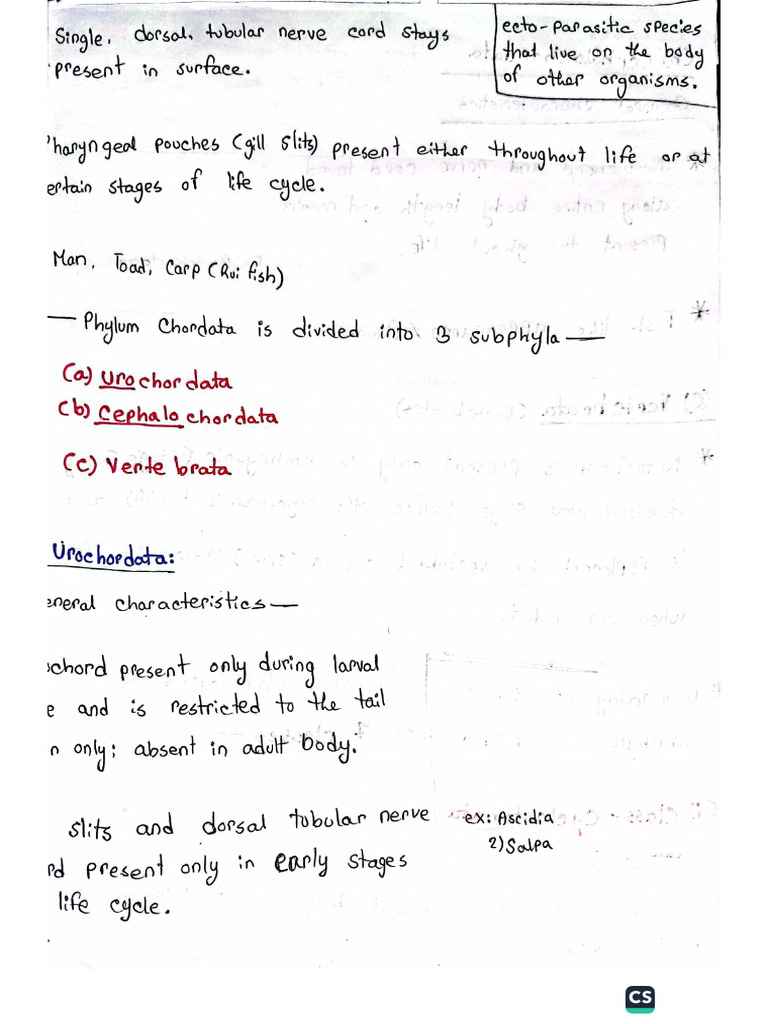 Single, dorsal, tubular nerve cord stays
present in surface.
ecto-parasitic species
that live on the body
of other organisms.
Pharyngeal pouches (gill slits) present either throughout life or at
ertain stages of life cycle.
Man, Toad, Carp (Rui fish)
— Phylum Chordata is divided into 3 subphyla —
(a) Urochordata
(b) Cephalochordata
(c) Vertebrata
Urochordata:
eneral characteristics —
ochord present only during larval
e and is restricted to the tail
n only; absent in adult body.
slits and dorsal tubular nerve
rd present only in early stages
life cycle.
ex: Ascidia
2) Salpa
CS